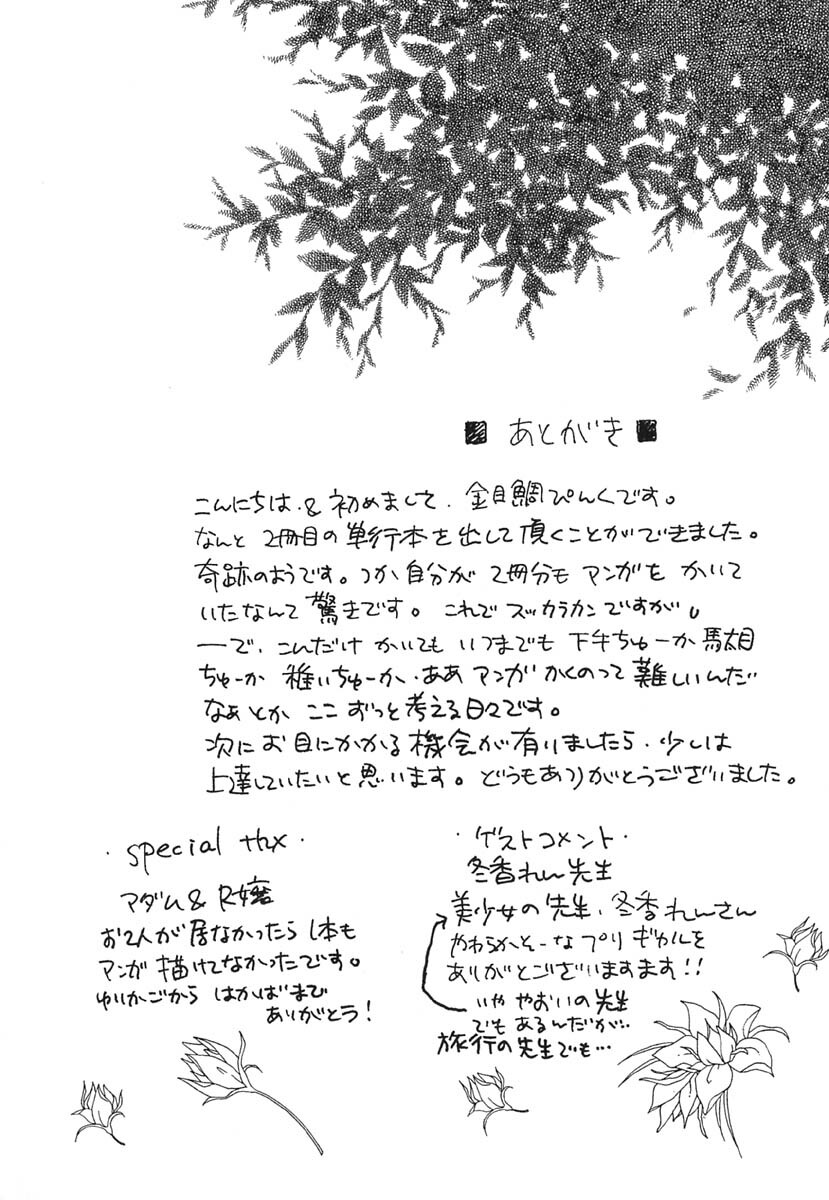 ■ あとがき ■
こんにちは.&初めまして.金目鯛ぴんくです。
なんと 2冊目の単行本を出して頂くことができました。
奇跡のようです。つか自分が 2冊分も マンガを かいて
いたなんて 驚きです。これで スッカラカンですが。
ーで、こんだけ かいても いつまでも 下手ちゅーか 馬太目
ちゅーか 稚いちゅーか.ああ マンガ かくのって 難しいんだ
なぁ とか ここ ずっと考える日々です。
次に お目にかかる 機会が有りましたら.少しは
上達していたいと思います。どうもありがとうございました。
・special thx・
マダム & R嬢
お2人が居なかったら 1本も
マンガ 描けてなかったです。
ゆりかごから はかばまで
ありがとう!
・ゲストコメント・
冬香れん先生
美少女の先生、冬香れんさん
やわらかそーな プリ ギャルを
ありがとございますます!!
いや やおいの先生
でも あるんだが…
旅行の先生でも…